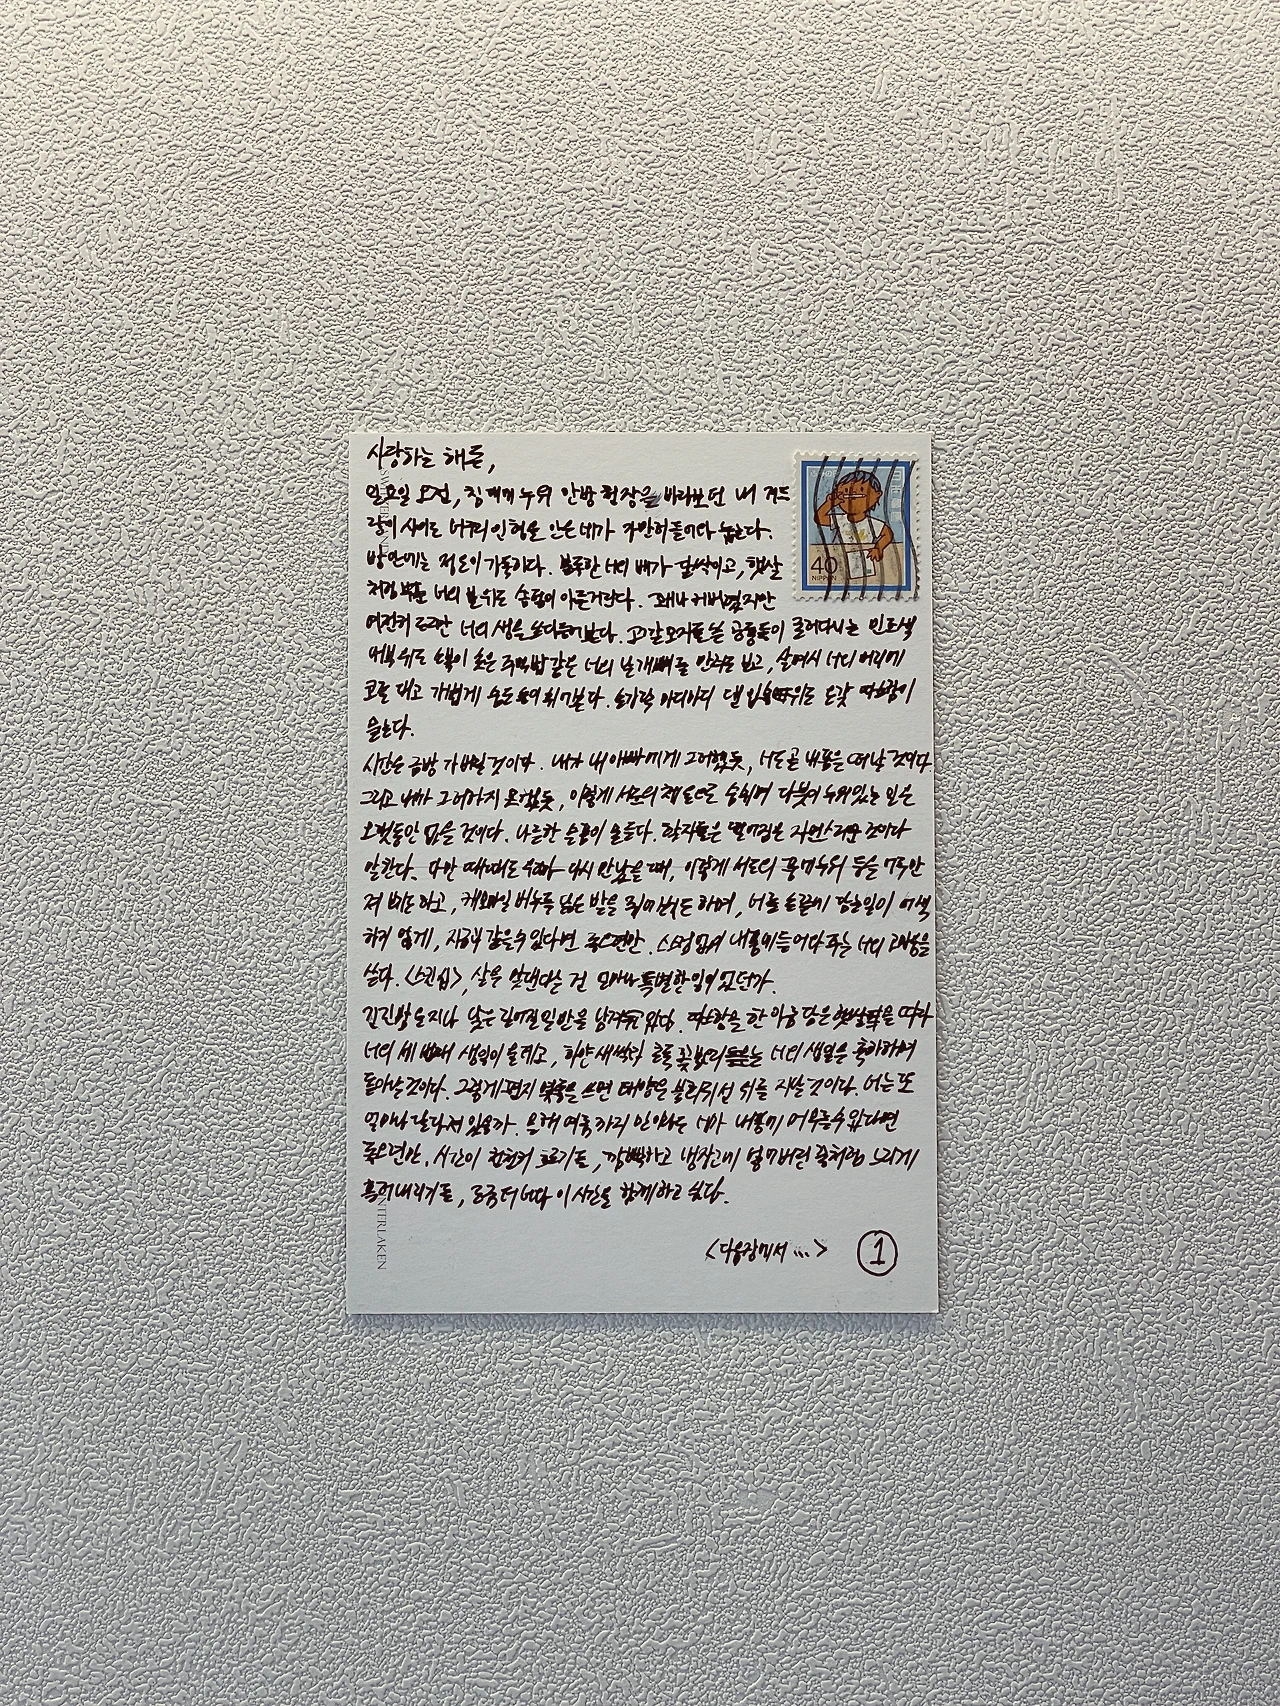 사랑하는 해든,
일요일 오전, 침대에 누워 안방 천장을 바라보던 내 겨드
랑이 사이로 너구리 인형을 안은 네가 가만히 들어와 눕는다.
방안에는 정적이 가득하다. 볼록한 너의 배가 들썩이고, 햇살
처럼 부푼 너의 볼 위로 솜털이 아른거린다. 꽤나 커버렸지만
여전히 조그만 너의 생을 쓰다듬어본다. 고깔모자를 쓴 공룡들이 굴러다니는 민트색
내복 위로 속이 찬 주먹밥 같은 너의 날개뼈를 만져도 보고, 슬며시 너의 머리에
코를 대고 가볍게 숨도 들이쉬어본다. 손가락 마디마디 댄 위로 온갖 따스함이
슬는다.
시간은 금방 가버릴 것이다. 내가 내 아빠에게 그러했듯, 너도 곧 내 품을 떠날 것이다.
그리고 내가 그러하지 못했듯, 이렇게 서로의 체온으로 숨쉬며 다붓이 누워있는 일은
오랫동안 없을 것이다. 나른한 슬픔이 솟는다. 학자들은 멀어짐은 자연스러운 것이라
말한다. 다만 때때로 우리가 다시 만났을 때, 이렇게 서로의 품에 누워 등을 가득 안
져 보는 하고, 게으른 비누를 닮은 발을 쥐어 보는 하며, 너를 온몸에 감는 일이 어색
하지 않게, 지금 같을 수 있다면 좋으련만. 스멀스멀 내 품에 들어와 주는 너의 고마움을
쓴다. <스킨십>, 살을 맞댄다는 건 얼마나 특별한 일이었던가.
긴긴밤을 지나 낮은 길어질 일만을 남겨두고 있다. 따스함을 한 아름 담은 햇살을 따라
너의 세 번째 생일이 올 테고, 하얀 새싹과 초록 꽃봉오리들은 너의 생일을 축하하며
돋아날 것이다. 그렇게 편지 몇통을 쓰면 태양은 불타는 선 위를 지날 것이다. 너는 또
얼마나 달라져 있을까. 올해 여름까지 만이라도 너가 내 품에 머무를 수 있다면
좋으련만. 시간이 천천히 흐르기를, 깜빡하고 냉장고에 넣어버린 꿀처럼 느리게
흘러내리기를, 조금 더 너와 이 시간을 함께하고 싶다.
<다음장에서 ...> ①
40
NIPPON
INTERLAKEN